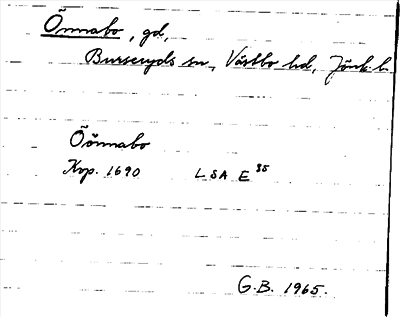 Õnnabo, gd,
Burseryds sn, Västbo hd, Jönk. l.
Õõnnabo
Kop. 1690 LSA E 35
G.B. 1965.